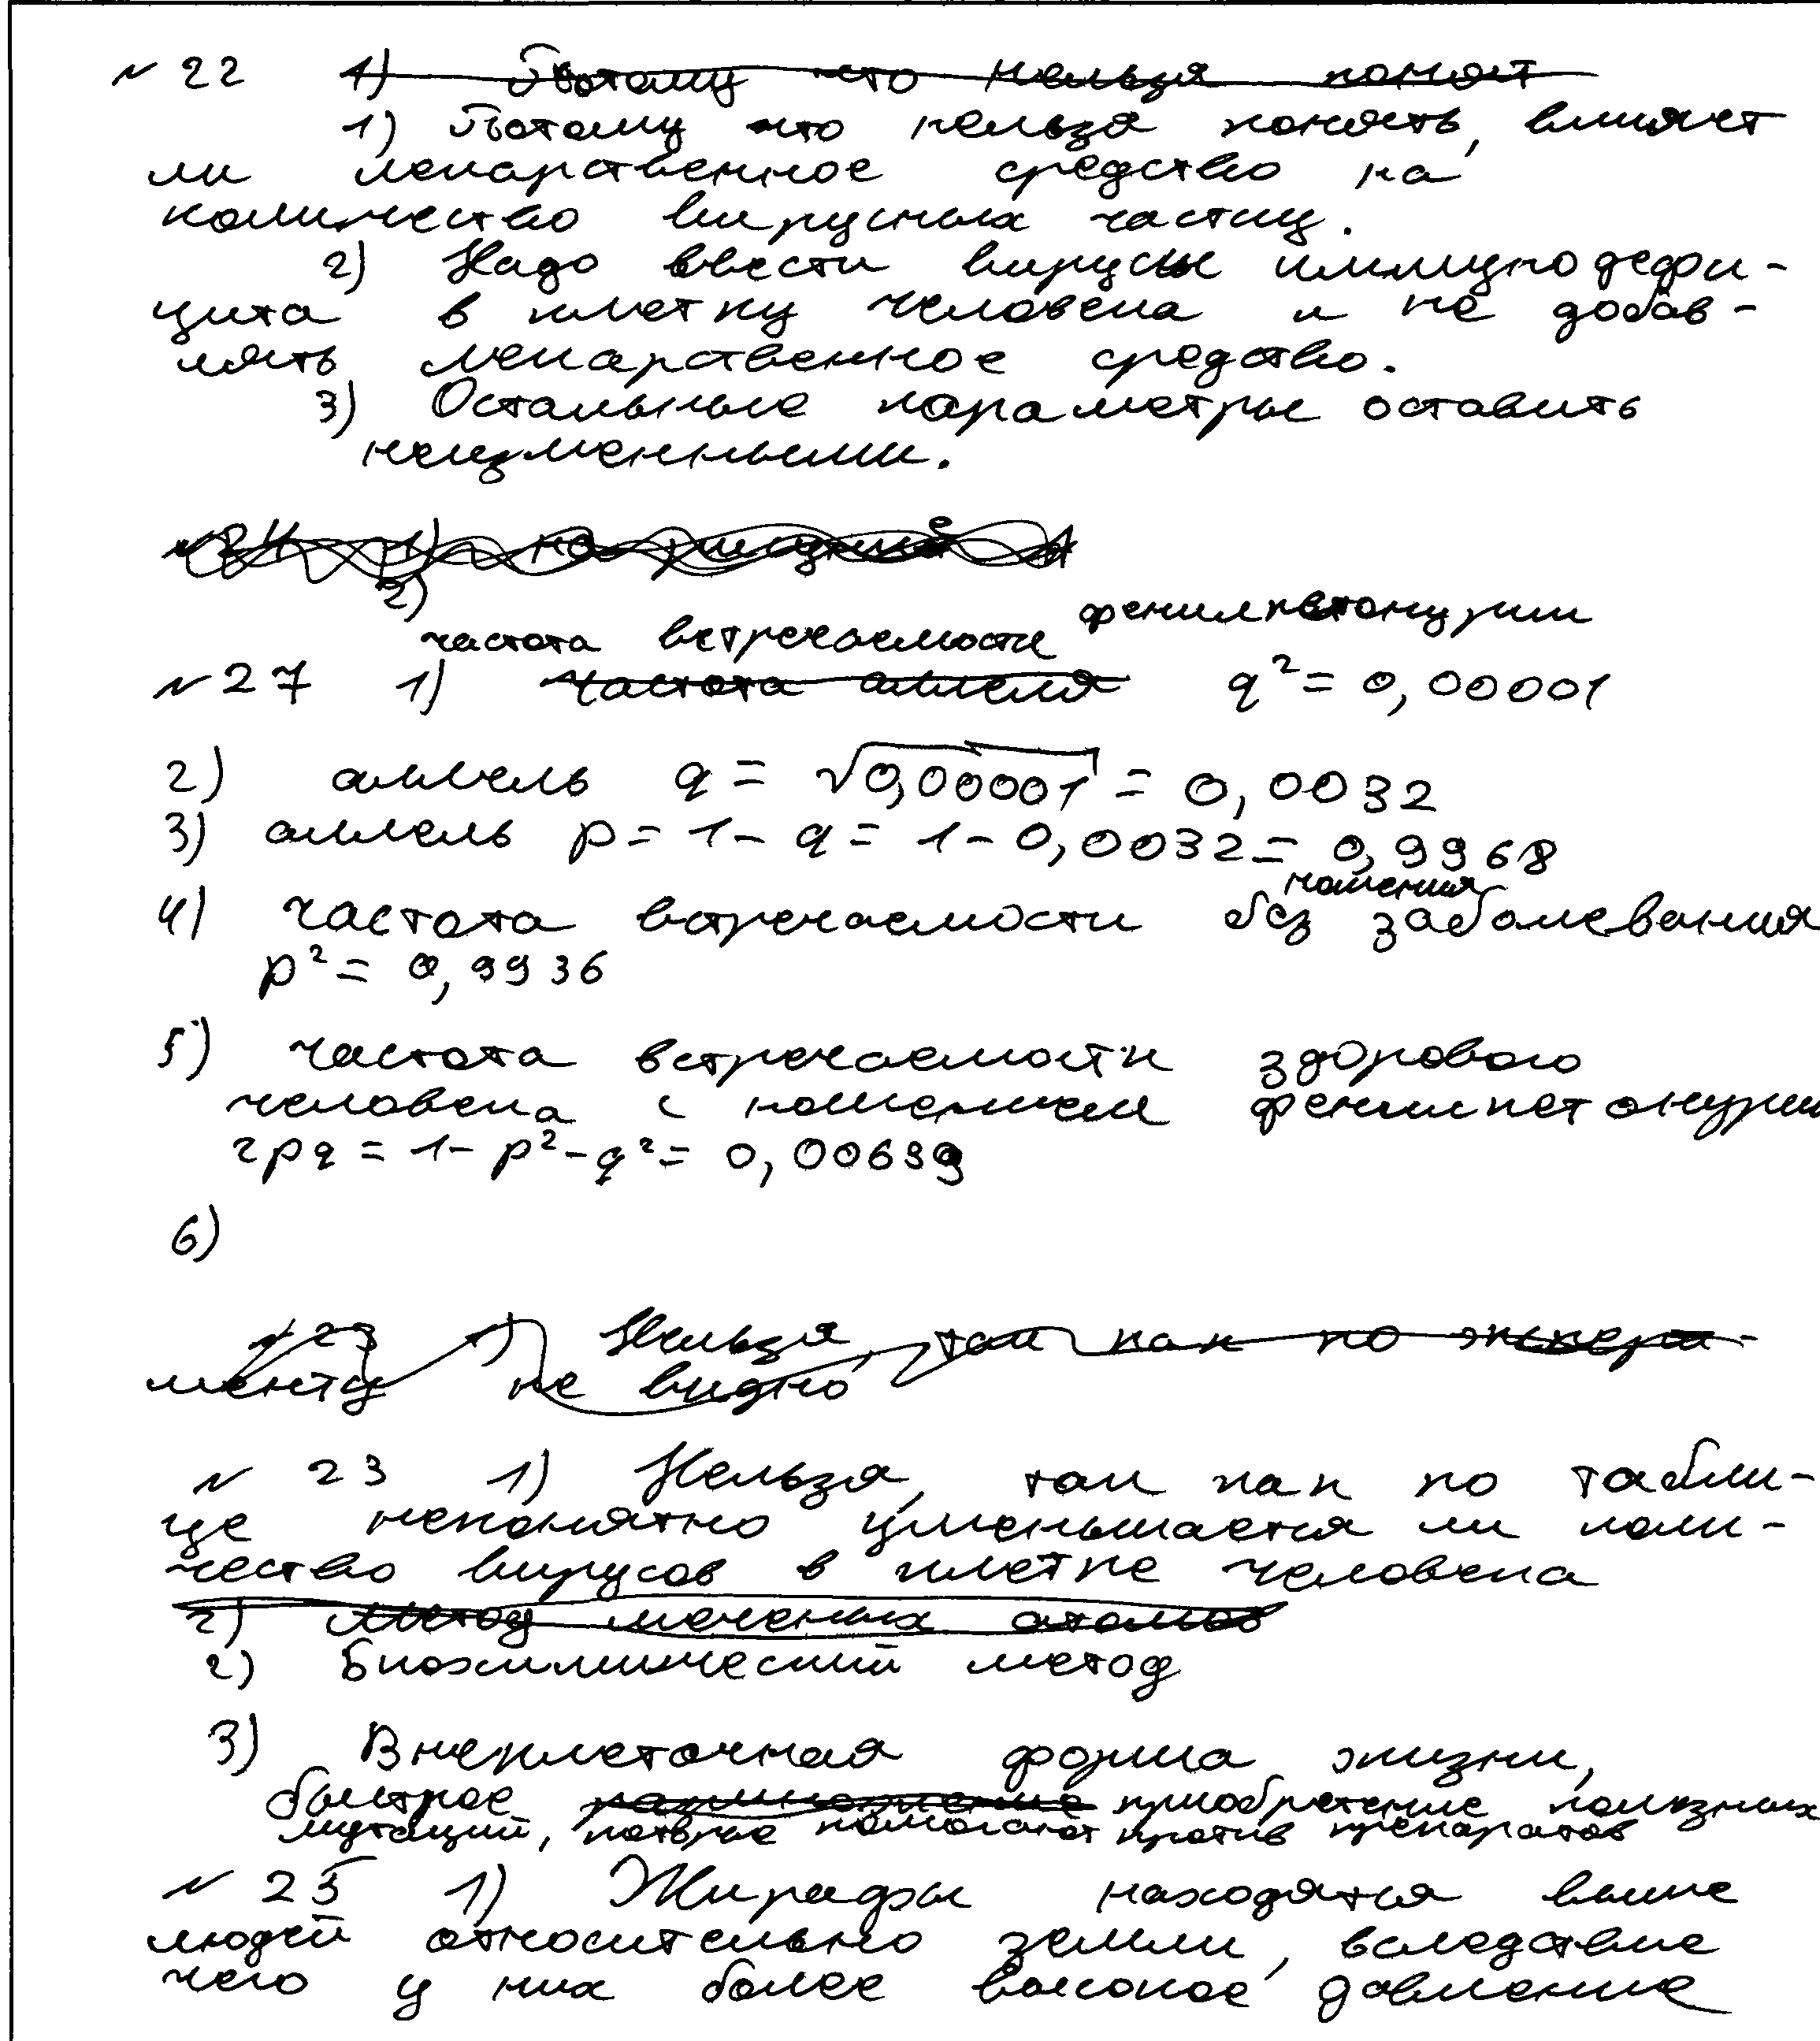 № 22 1) Потому что нельзя понят
1) Потому что нельзя понять, влияет
ли лекарственное средство на
количество вирусных частиц.
2) Надо ввести вирусы иммунодефи-
цита в клетку человека и не добав-
лять лекарственное средство.
3) Остальные параметры оставить
неизменными.
№24 1) на рисунке А
2)
частота встречаемости фенилкетонурии
№ 27 1) частота аллеля q² = 0,00001
2) аллель q = √0,00001 = 0,0032
3) аллель p = 1 - q = 1 - 0,0032 = 0,9968
ношения
4) частота встречаемости без заболевания
p² = 0,9936
5) частота встречаемости здорового
человека с ношением фенилкетонурии
2pq = 1 - p² - q² = 0,00639
6)
№ 23 1) Нельзя, так как по экспери-
менту не видно
№ 23 1) Нельзя, так как по табли-
це непонятно уменьшается ли коли-
чество вирусов в клетке человека
2) Метод меченых атомов
2) Биохимический метод
3) Внеклеточная форма жизни,
быстрое размножение приобретение полезных
мутаций, которые помогают против препаратов
№ 25 1) Жирафы находятся выше
людей относительно земли, вследствие
чего у них более высокое давление